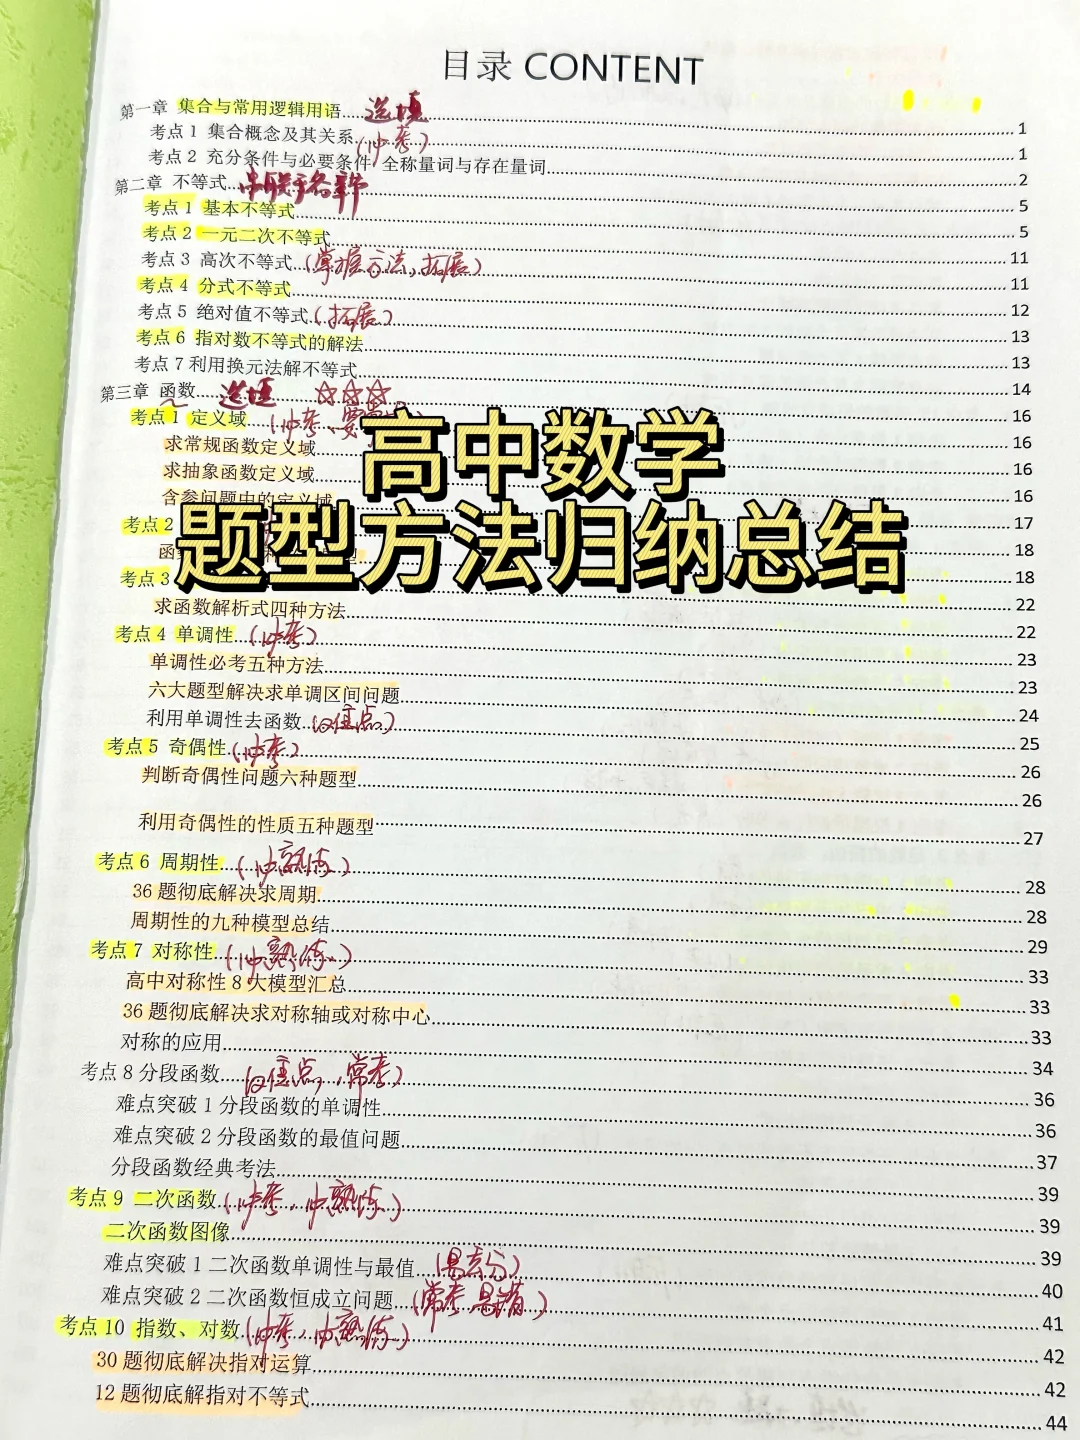 目录 CONTENT
第一章 集合与常用逻辑用语 选填 1
考点1 集合概念及其关系(必考) 1
考点2 充分条件与必要条件 全称量词与存在量词 2
第二章 不等式 串联于各章节 5
考点1 基本不等式 5
考点2 一元二次不等式 11
考点3 高次不等式(掌握方法,拓展) 11
考点4 分式不等式 12
考点5 绝对值不等式(拓展) 13
考点6 指对数不等式的解法 13
考点7利用换元法解不等式 14
第三章 函数 选填 ☆☆☆ 16
考点1 定义域(必考、 16
求常规函数定义域 16
求抽象函数定义域 16
含参问题中的定义域 17
高中数学
题型方法归纳总结
考点2 18
函 18
考点3 22
求函数解析式四种方法 22
考点4 单调性(必考) 23
单调性必考五种方法 23
六大题型解决求单调区间问题 24
利用单调性去函数(以佳点) 25
考点5 奇偶性(必考) 26
判断奇偶性问题六种题型 26
利用奇偶性的性质五种题型 27
考点6 周期性(必熟练) 28
36题彻底解决求周期 28
周期性的九种模型总结 29
考点7 对称性(必熟练) 33
高中对称性8大模型汇总 33
36题彻底解决求对称轴或对称中心 33
对称的应用 34
考点8分段函数 常考) 36
难点突破1分段函数的单调性 36
难点突破2分段函数的最值问题 37
分段函数经典考法 39
考点9 二次函数(必考,必熟练) 39
二次函数图像 39
难点突破1二次函数单调性与最值(易丢分) 40
难点突破2二次函数恒成立问题(常考 易错) 41
考点10 指数、对数(必考,必熟练) 42
30题彻底解决指对运算 42
12题彻底解指对不等式 44